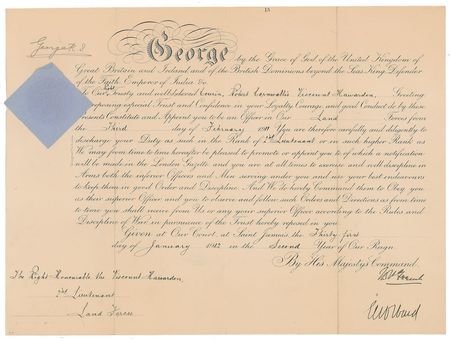 George R. I.
George by the Grace of God of the United Kingdom of
Great Britain and Ireland and of the British Dominions beyond the Seas King, Defender
of the Faith, Emperor of India, &c.
To Our Trusty and well-beloved Cousin, Robert Cornwallis Viscount Hawarden, Greeting
reposing especial Trust and Confidence in your Loyalty, Courage, and good Conduct do by these
Presents Constitute and Appoint you to be an Officer in Our Land Forces from
the Third day of February 1911 You are therefore carefully and diligently to
discharge your Duty as such in the Rank of 2nd Lieutenant or in such higher Rank as
We may from time to time hereafter be pleased to promote or appoint you to of which a notification
will be made in the London Gazette and you are at all times to exercise and well discipline in
Arms both the inferior Officers and Men serving under you and use your best endeavours
to keep them in good Order and Discipline. And We do hereby Command them to Obey you
as their superior Officer and you to observe and follow such Orders and Directions as from time
to time you shall receive from Us or any your superior Officer according to the Rules and
Discipline of War in pursuance of the Trust hereby reposed in you.
Given at Our Court, at Saint James's, the Thirty first
day of January 1912 in the Second Year of Our Reign
By His Majesty's Command.
The Right Honourable the Viscount Hawarden,
2nd Lieutenant
Land Forces
E W D Ward